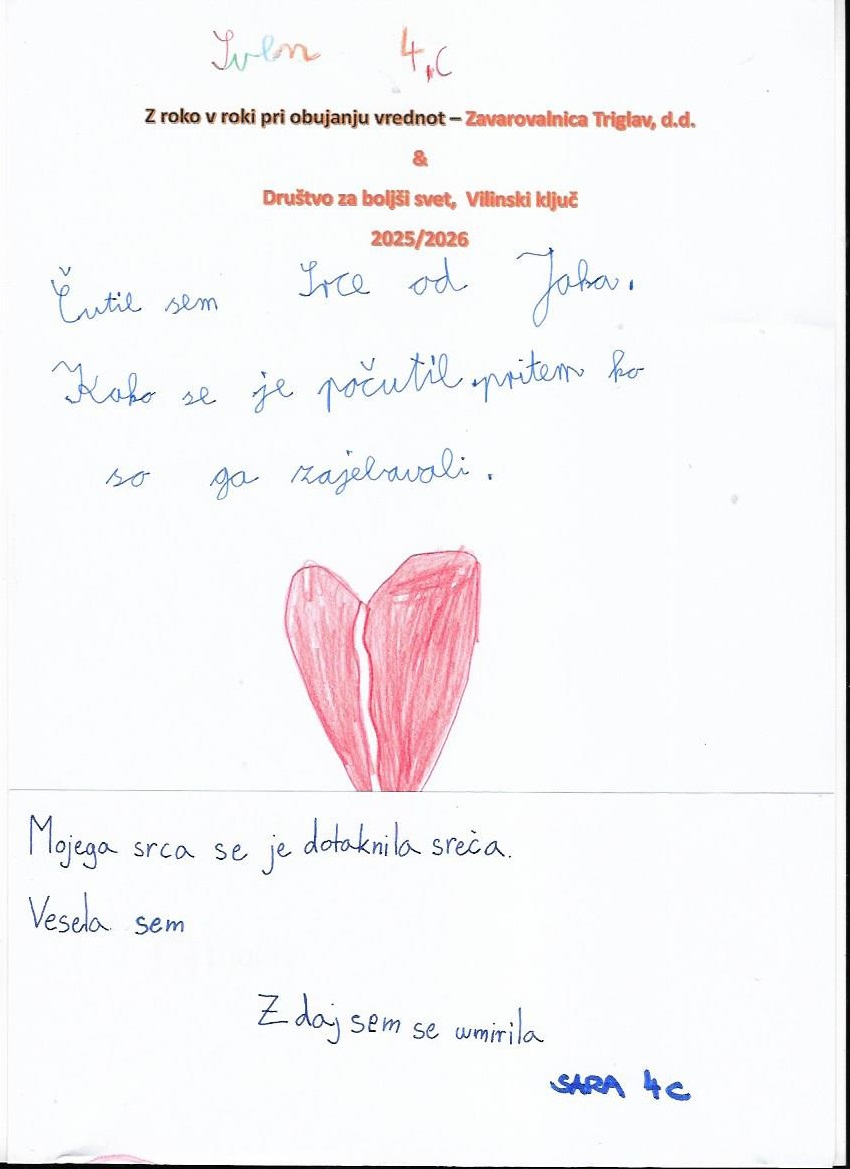 Sven 4.C
Z roko v roki pri obujanju vrednot – Zavarovalnica Triglav, d.d.
&
Društvo za boljši svet, Vilinski ključ
2025/2026
Čutil sem Srce od Jaka.
Kako se je počutil pritem ko
so ga zajebavali.
Mojega srca se je dotaknila sreča.
Vesela sem
Zdaj sem se umirila
SARA 4C